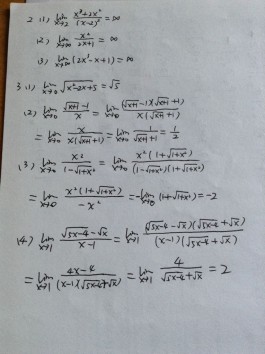 2 (1) lim x→2 (x³+2x²)/(x-2)² = ∞
(2) lim x→∞ x²/(2x+1) = ∞
(3) lim x→∞ (2x³-x+1) = ∞
3 (1) lim x→0 √(x²-2x+5) = √5
(2) lim x→0 (√(x+1)-1)/x = lim x→0 (√(x+1)-1)(√(x+1)+1)/x(√(x+1)+1)
= lim x→0 x/x(√(x+1)+1) = lim x→0 1/(√(x+1)+1) = 1/2
(3) lim x→0 x²/(1-√(1+x²)) = lim x→0 x²(1+√(1+x²))/(1-√(1+x²))(1+√(1+x²))
= lim x→0 x²(1+√(1+x²))/-x² = -lim x→0 (1+√(1+x²)) = -2
(4) lim x→1 (√(5x-4)-√x)/(x-1) = lim x→1 (√(5x-4)-√x)(√(5x-4)+√x)/(x-1)(√(5x-4)+√x)
= lim x→1 (4x-4)/(x-1)(√(5x-4)+√x) = lim x→1 4/(√(5x-4)+√x) = 2